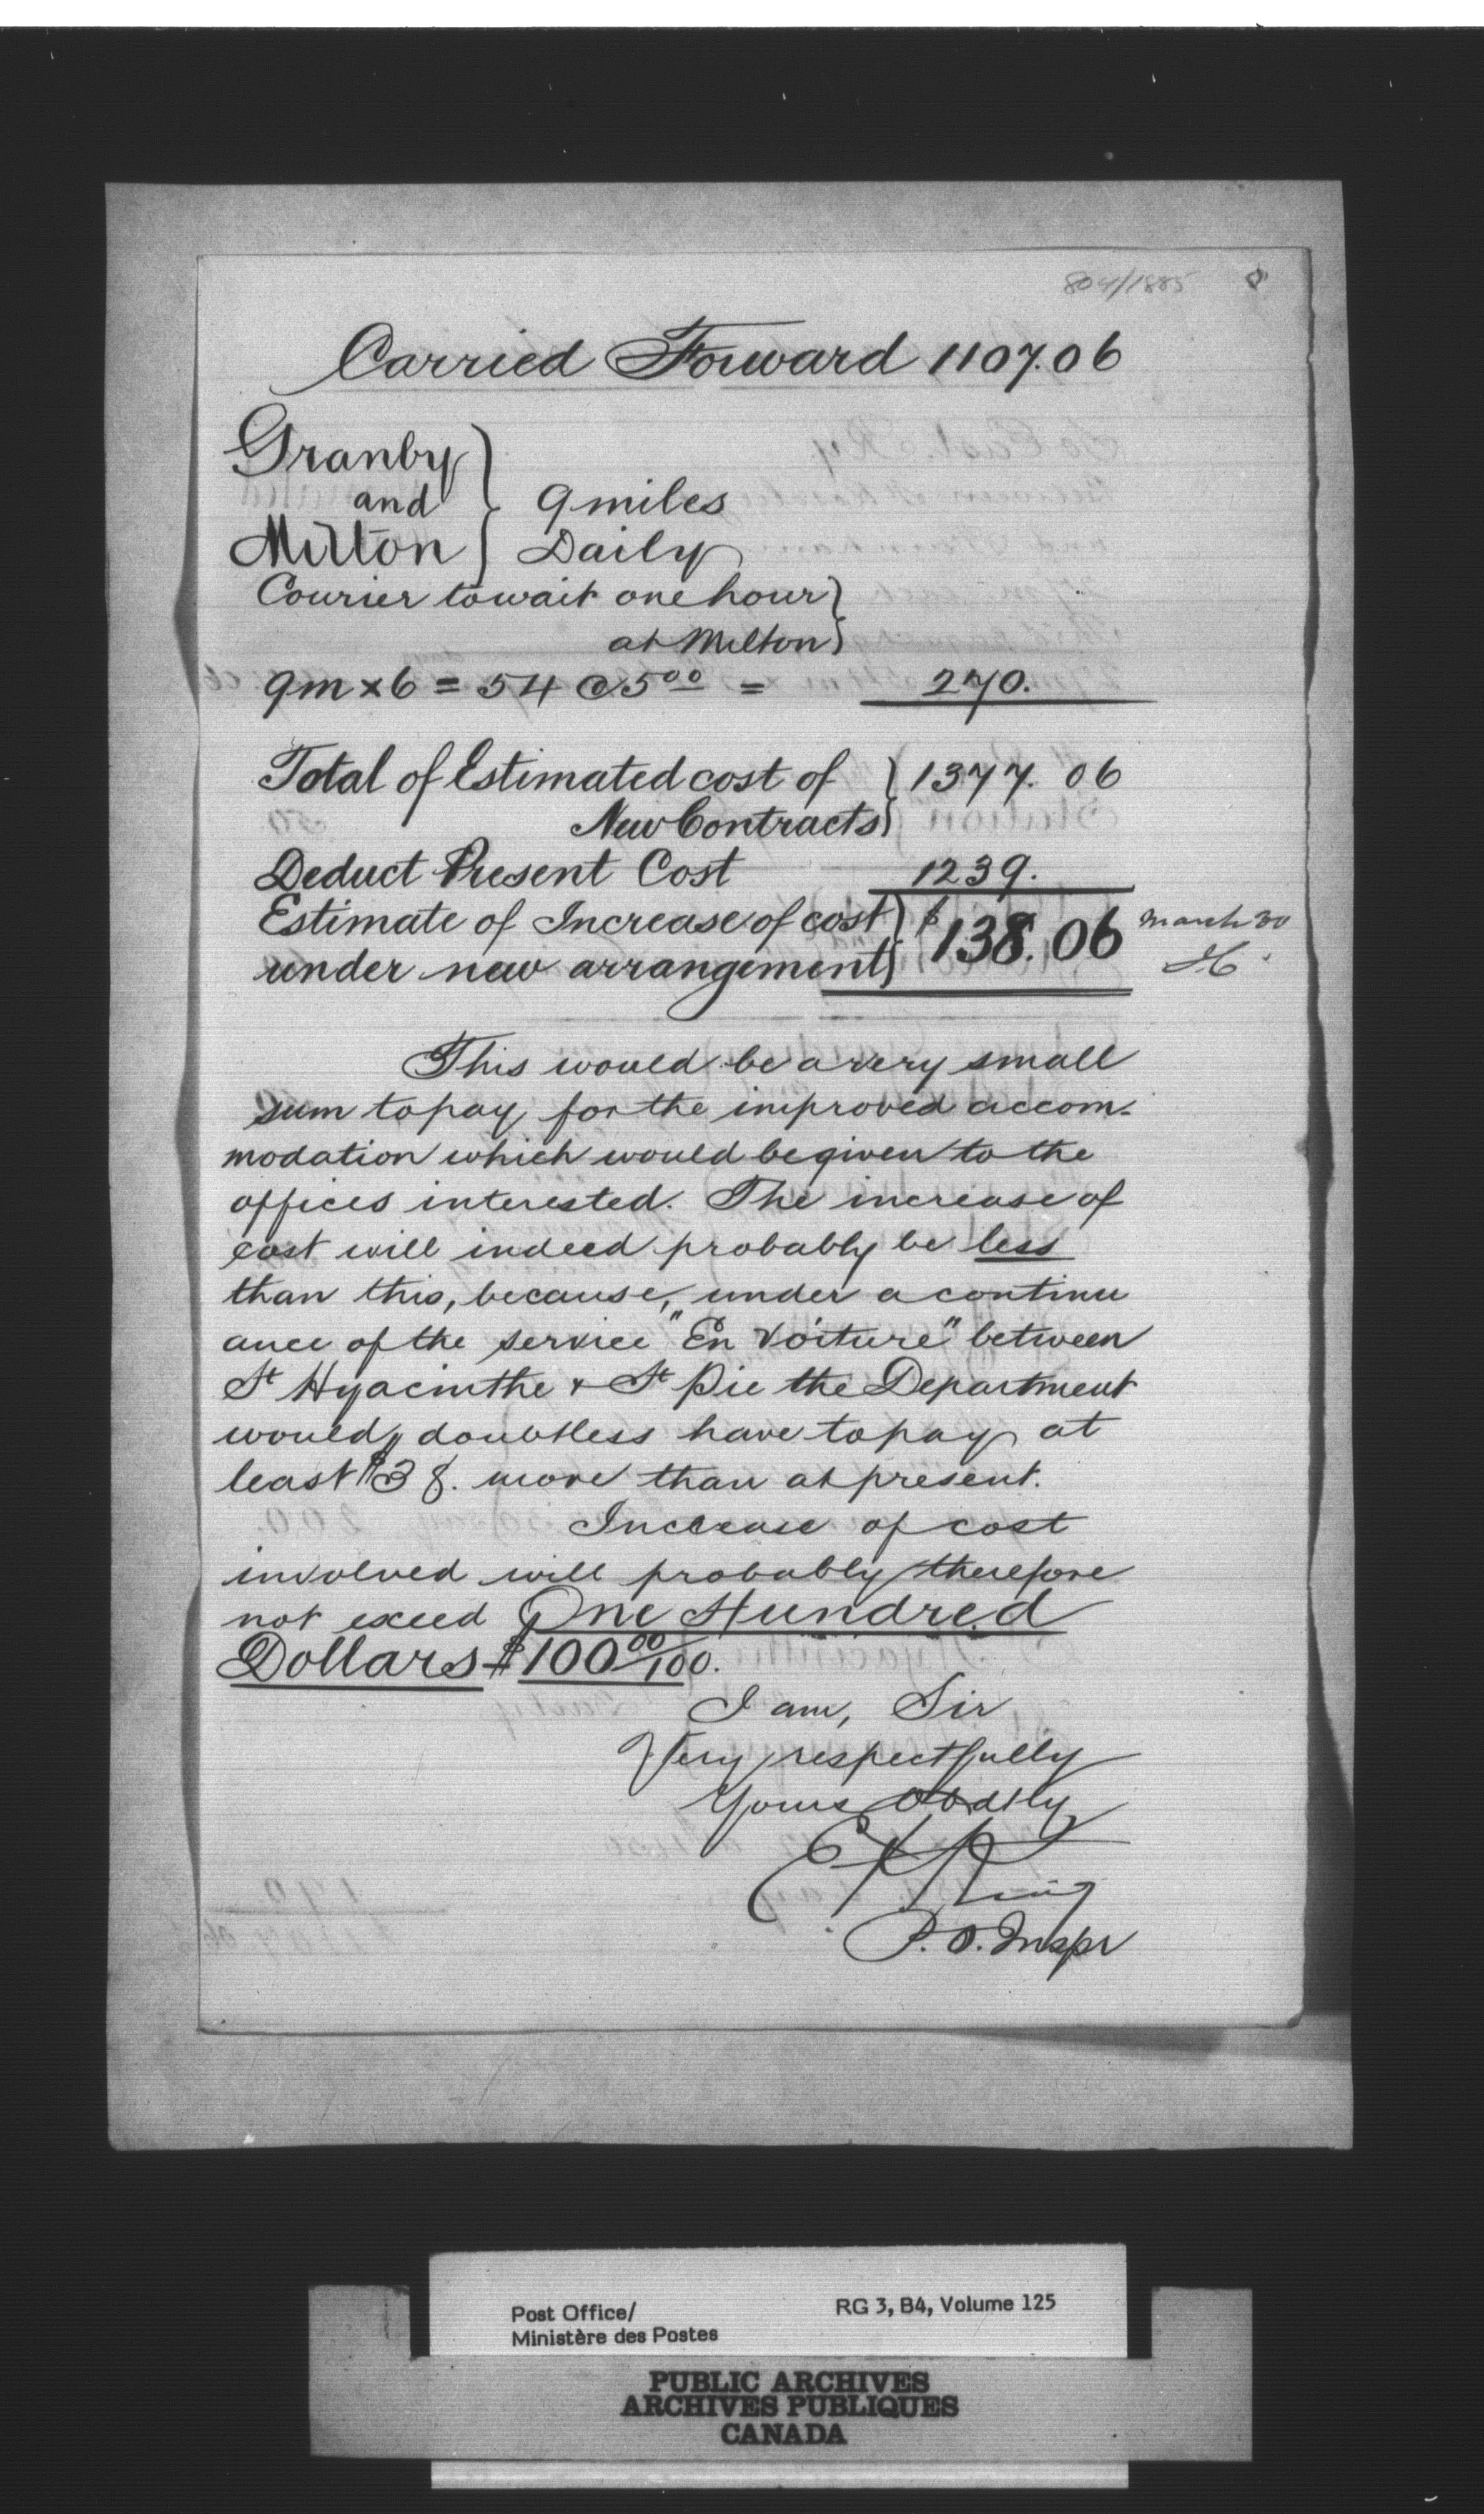 804/1885 8
Carried Forward 1107.06
Granby
and } 9 miles
Milton Daily
Courier to wait one hour
at Milton
9m x 6 = 54 @ 5 00 = 270.
Total of Estimated cost of } 1377.06
New Contracts
Deduct Present Cost 1239.
Estimate of Increase of cost } $138.06 March 30
under new arrangement
This would be a very small
sum to pay for the improved accom-
modation which would be given to the
offices interested. The increase of
cost will indeed probably be less
than this, because, under a continu
ance of the service "En Voiture" between
St Hyacinthe & St Pie the Department
would doubtless have to pay at
least $38. more than at present.
Increase of cost
involved will probably therefore
not exceed One Hundred
Dollars $100 00/100.
I am, Sir
Very respectfully
Yours Obdtly
E F King
P.O. Inspr
Post Office/ RG 3, B4, Volume 125
Ministère des Postes
PUBLIC ARCHIVES
ARCHIVES PUBLIQUES
CANADA